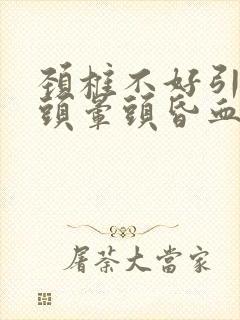 頚椎不好引
頭暈頭昏血
屠蘇大當家